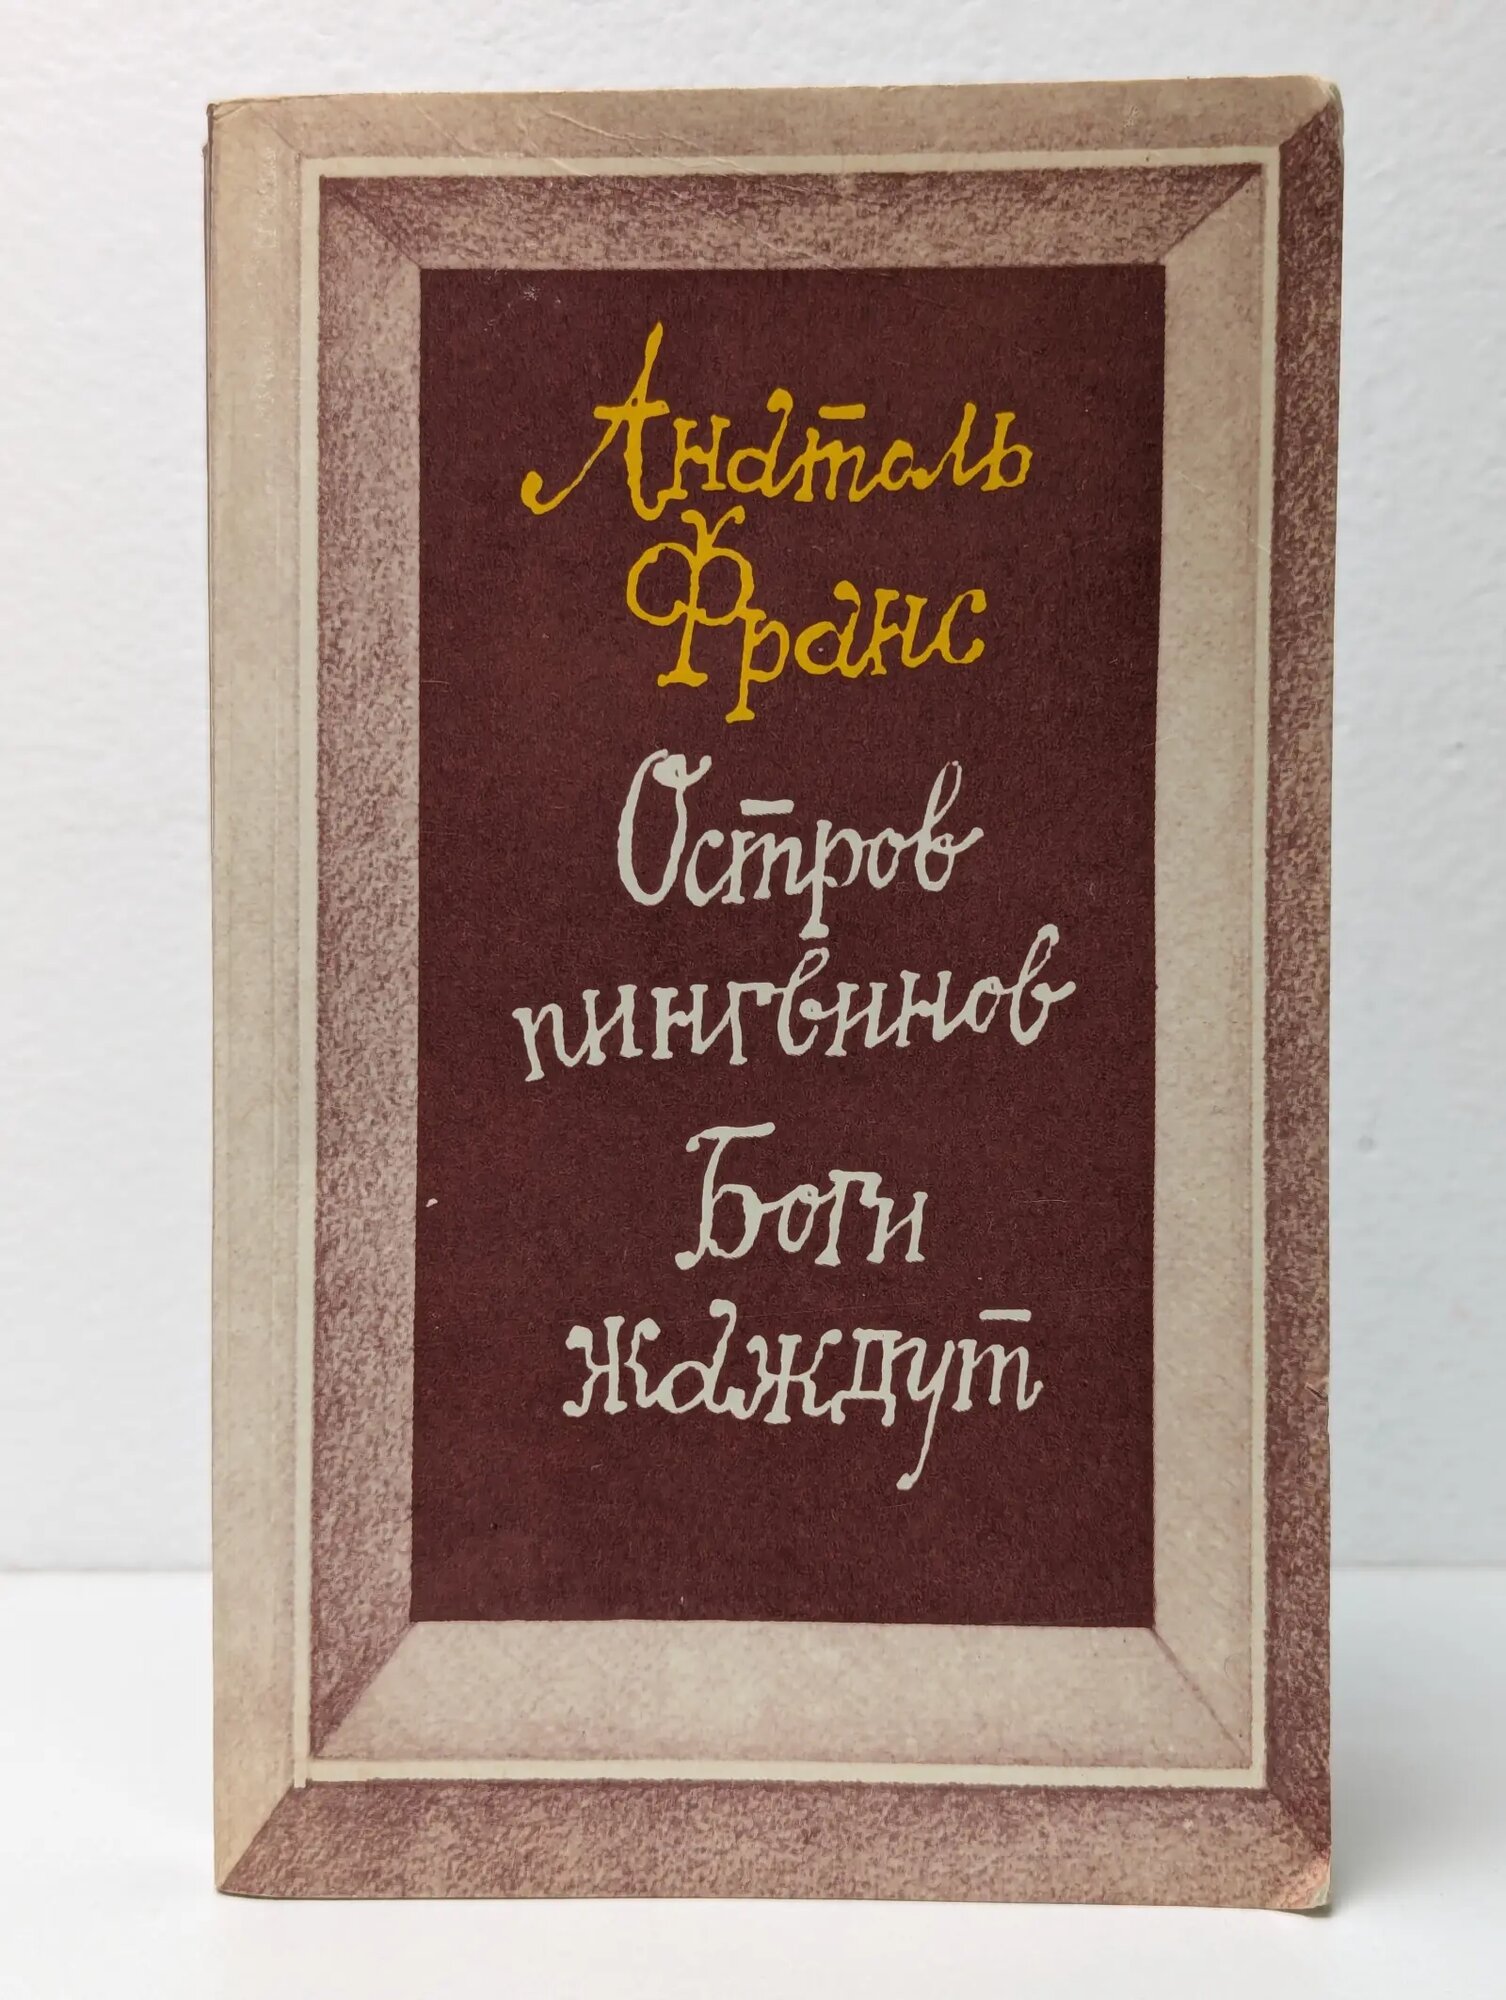 Анатоль
Франс
Остров
пингвинов
Боги
жаждут